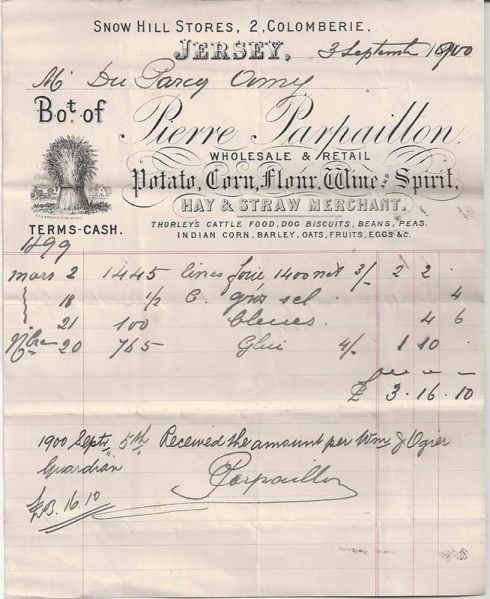 SNOW HILL STORES, 2, COLOMBERIE,
JERSEY, 3 Septemb 1900
Mr Du Parcq Amy
Bot. of Pierre Parpaillon.
WHOLESALE & RETAIL
Potato, Corn, Flour, Wine AND Spirit,
HAY & STRAW MERCHANT.
TERMS-CASH.
THORLEY'S CATTLE FOOD, DOG BISCUITS, BEANS, PEAS.
INDIAN CORN, BARLEY, OATS, FRUITS, EGGS &C.
1899
mars 2 1445 lines foin 1400 net 3/ 2 2 .
18 1/2 C. gros sel . 4
21 100 bleues . 4 6
9bre 20 765 Glui 4/ 1 10 .
£ 3 . 16 . 10
1900 Septr 5th Received the amount per Wm J Ogier
Guardian
£3. 16. 10 Parpaillon